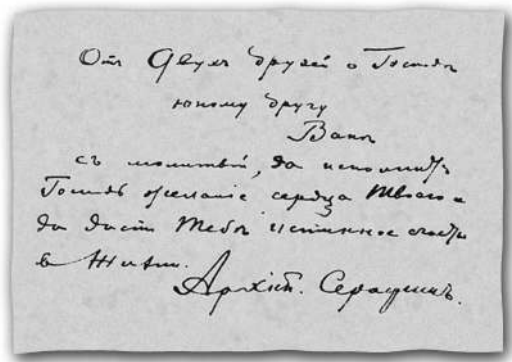 Отъ Двухъ друзей о Господѣ
юному другу
Ванѣ
съ молитвой, да исполнитъ
Господь желанiе сердца Твоего и
да дастъ Тебѣ истинное счастье
в жизни.
Архiеп. Серафимъ.